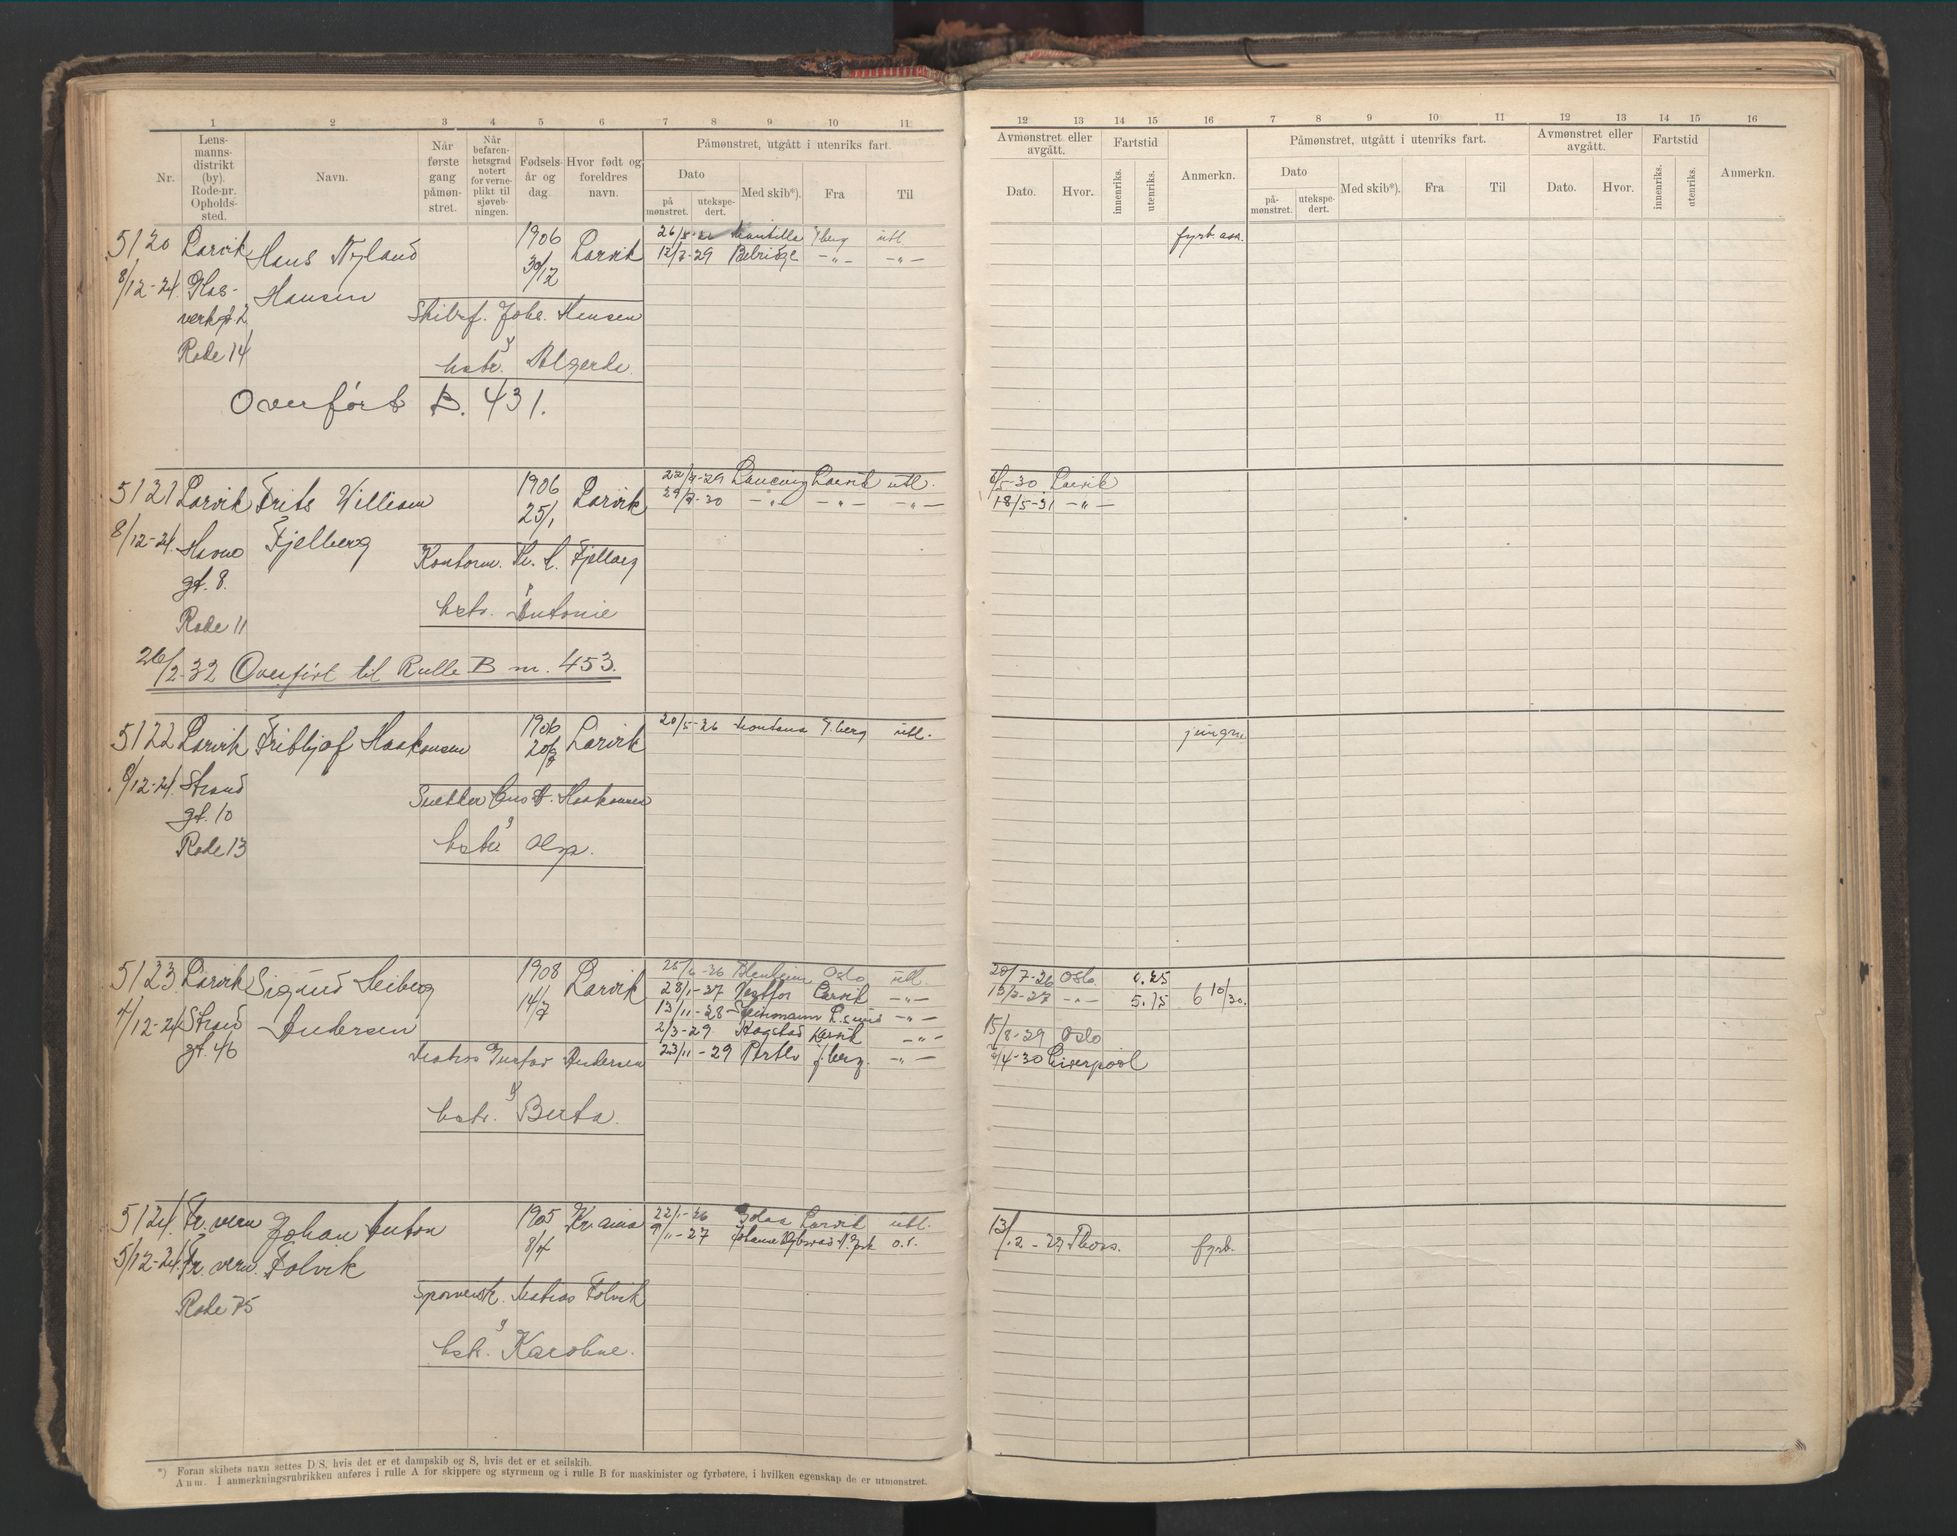 1 2 3 4 5 6 7 8 9 10 11
Nr.
Lens-
manns-
distrikt
(by).
Rode-nr.
Opholds-
sted.
Navn.
Når
første
gang
påmøn-
stret.
Når
befaren-
hetsgrad
notert
for verne-
plikt til
sjøveb-
ningen.
Fødsels-
år og
dag.
Hvor født og
foreldres
navn.
Påmønstret, utgått i utenriks fart.
Dato
på
mønstret.
utekspe-
dert.
Med skib*).
Fra
Til
12 13 14 15 16 7 8 9 10 11 12 13 14 15 16
Avmønstret eller
avgått.
Dato. Hvor.
Fartstid
innenriks. utenriks.
Anmerkn.
Påmønstret, utgått i utenriks fart.
Dato
på-
mønstret.
utekspe-
dert.
Med skib*). Fra Til
Avmønstret eller
avgått.
Dato. Hvor.
Fartstid
innenriks. utenriks.
Anmerkn.
5120 Larvik Hans Nyland 1906 Larvik
26/5-26 utl. fyrb. ass.
12/7-29 Belridge -"- -"-
30/12
8/12-24. Glas- Hansen
verkgt 2
Rode 14
Skibsf. Johs. Hansen
hstr. Valgerda.
Overført B. 431.
5121 Larvik Frits William 1906 Larvik
25/1
22/7-29 Larvik utl. 6/5-30 Larvik
29/7-30 -"- -"- -"- 18/5-31 -"-
8/12-24. Havne Fjelberg
gt. 8.
Rode 11
Kontorm. Fjelberg
hstr. Antonie
26/2-32 Overført til Rulle B nr. 453.
5122 Larvik Fridthjof Haakonsen 1906 Larvik
20/5-26 Montana utl. jungm.
9/12-24. Strand
gt. 10
Rode 13
Haakonsen
hstr. Olga.
5123 Larvik Sigurd Heiberg 1908 Larvik
14/7
4/12-24 Strand Andersen
gt. 46
25/6-26 Blenheim Oslo utl. 20/7-26 Oslo 0.25
28/1-27 Vestfos Larvik -"- 13/7-27 -"- 5.15 6 10/30.
13/11-28 L.sund -"-
2/3-29. Kogstad Larvik -"- 15/8-29 Oslo
23/11-29 -"- /4-30 Liverpool
Gustav Andersen
hstr. Berta.
5124. Fr. vern Johan Anton 1905 Kr.ania
8/4
22/1-26 Larvik utl.
9/11-27 o.s. 13/12-27 fyrb.
5/12-24. Fr. vern. Folvik
Rode 75
Folvik
hstr. Karoline.
*) Foran skibets navn settes D/S, hvis det er et dampskib og S, hvis det er et seilskib.
Anm. I anmerkningsrubrikken anføres i rulle A for skippere og styrmenn og i rulle B for maskinister og fyrbøtere, i hvilken egenskap de er utmønstret.